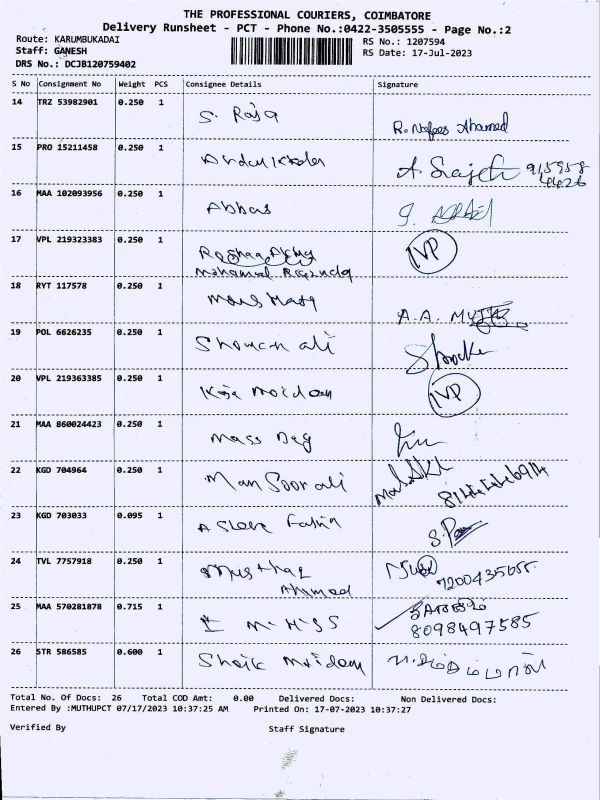 THE PROFESSIONAL COURIERS, COIMBATORE
Delivery Runsheet - PCT - Phone No.:0422-3505555 - Page No.:2
Route: KARUMBUKADAI
Staff: GANESH
DRS No.: DCJB120759402
RS No.: 1207594
RS Date: 17-Jul-2023
S No Consignment No Weight PCS Consignee Details Signature
14 TRZ 53982901 0.250 1 S. Raja
R. Nafees Ahamed
15 PRO 15211458 0.250 1
16 MAA 102093956 0.250 1 Abbas
17 VPL 219323383 0.250 1 IVP
Mohamed
18 RYT 117578 0.250 1
A.A.
19 POL 6626235 0.250 1 ali
20 VPL 219363385 0.250 1 Kaja Moideen IVP
21 MAA 860024423 0.250 1 Mass
22 KGD 704964 0.250 1 Mansoor ali
23 KGD 703033 0.095 1
24 TVL 7757918 0.250 1
Ahmed
25 MAA 570281878 0.715 1
8098497585
26 STR 586585 0.600 1 Shaik Moideen
Total No. Of Docs: 26 Total COD Amt: 0.00 Delivered Docs: Non Delivered Docs:
Entered By :MUTHUPCT 07/17/2023 10:37:25 AM Printed On: 17-07-2023 10:37:27
Verified By Staff Signature